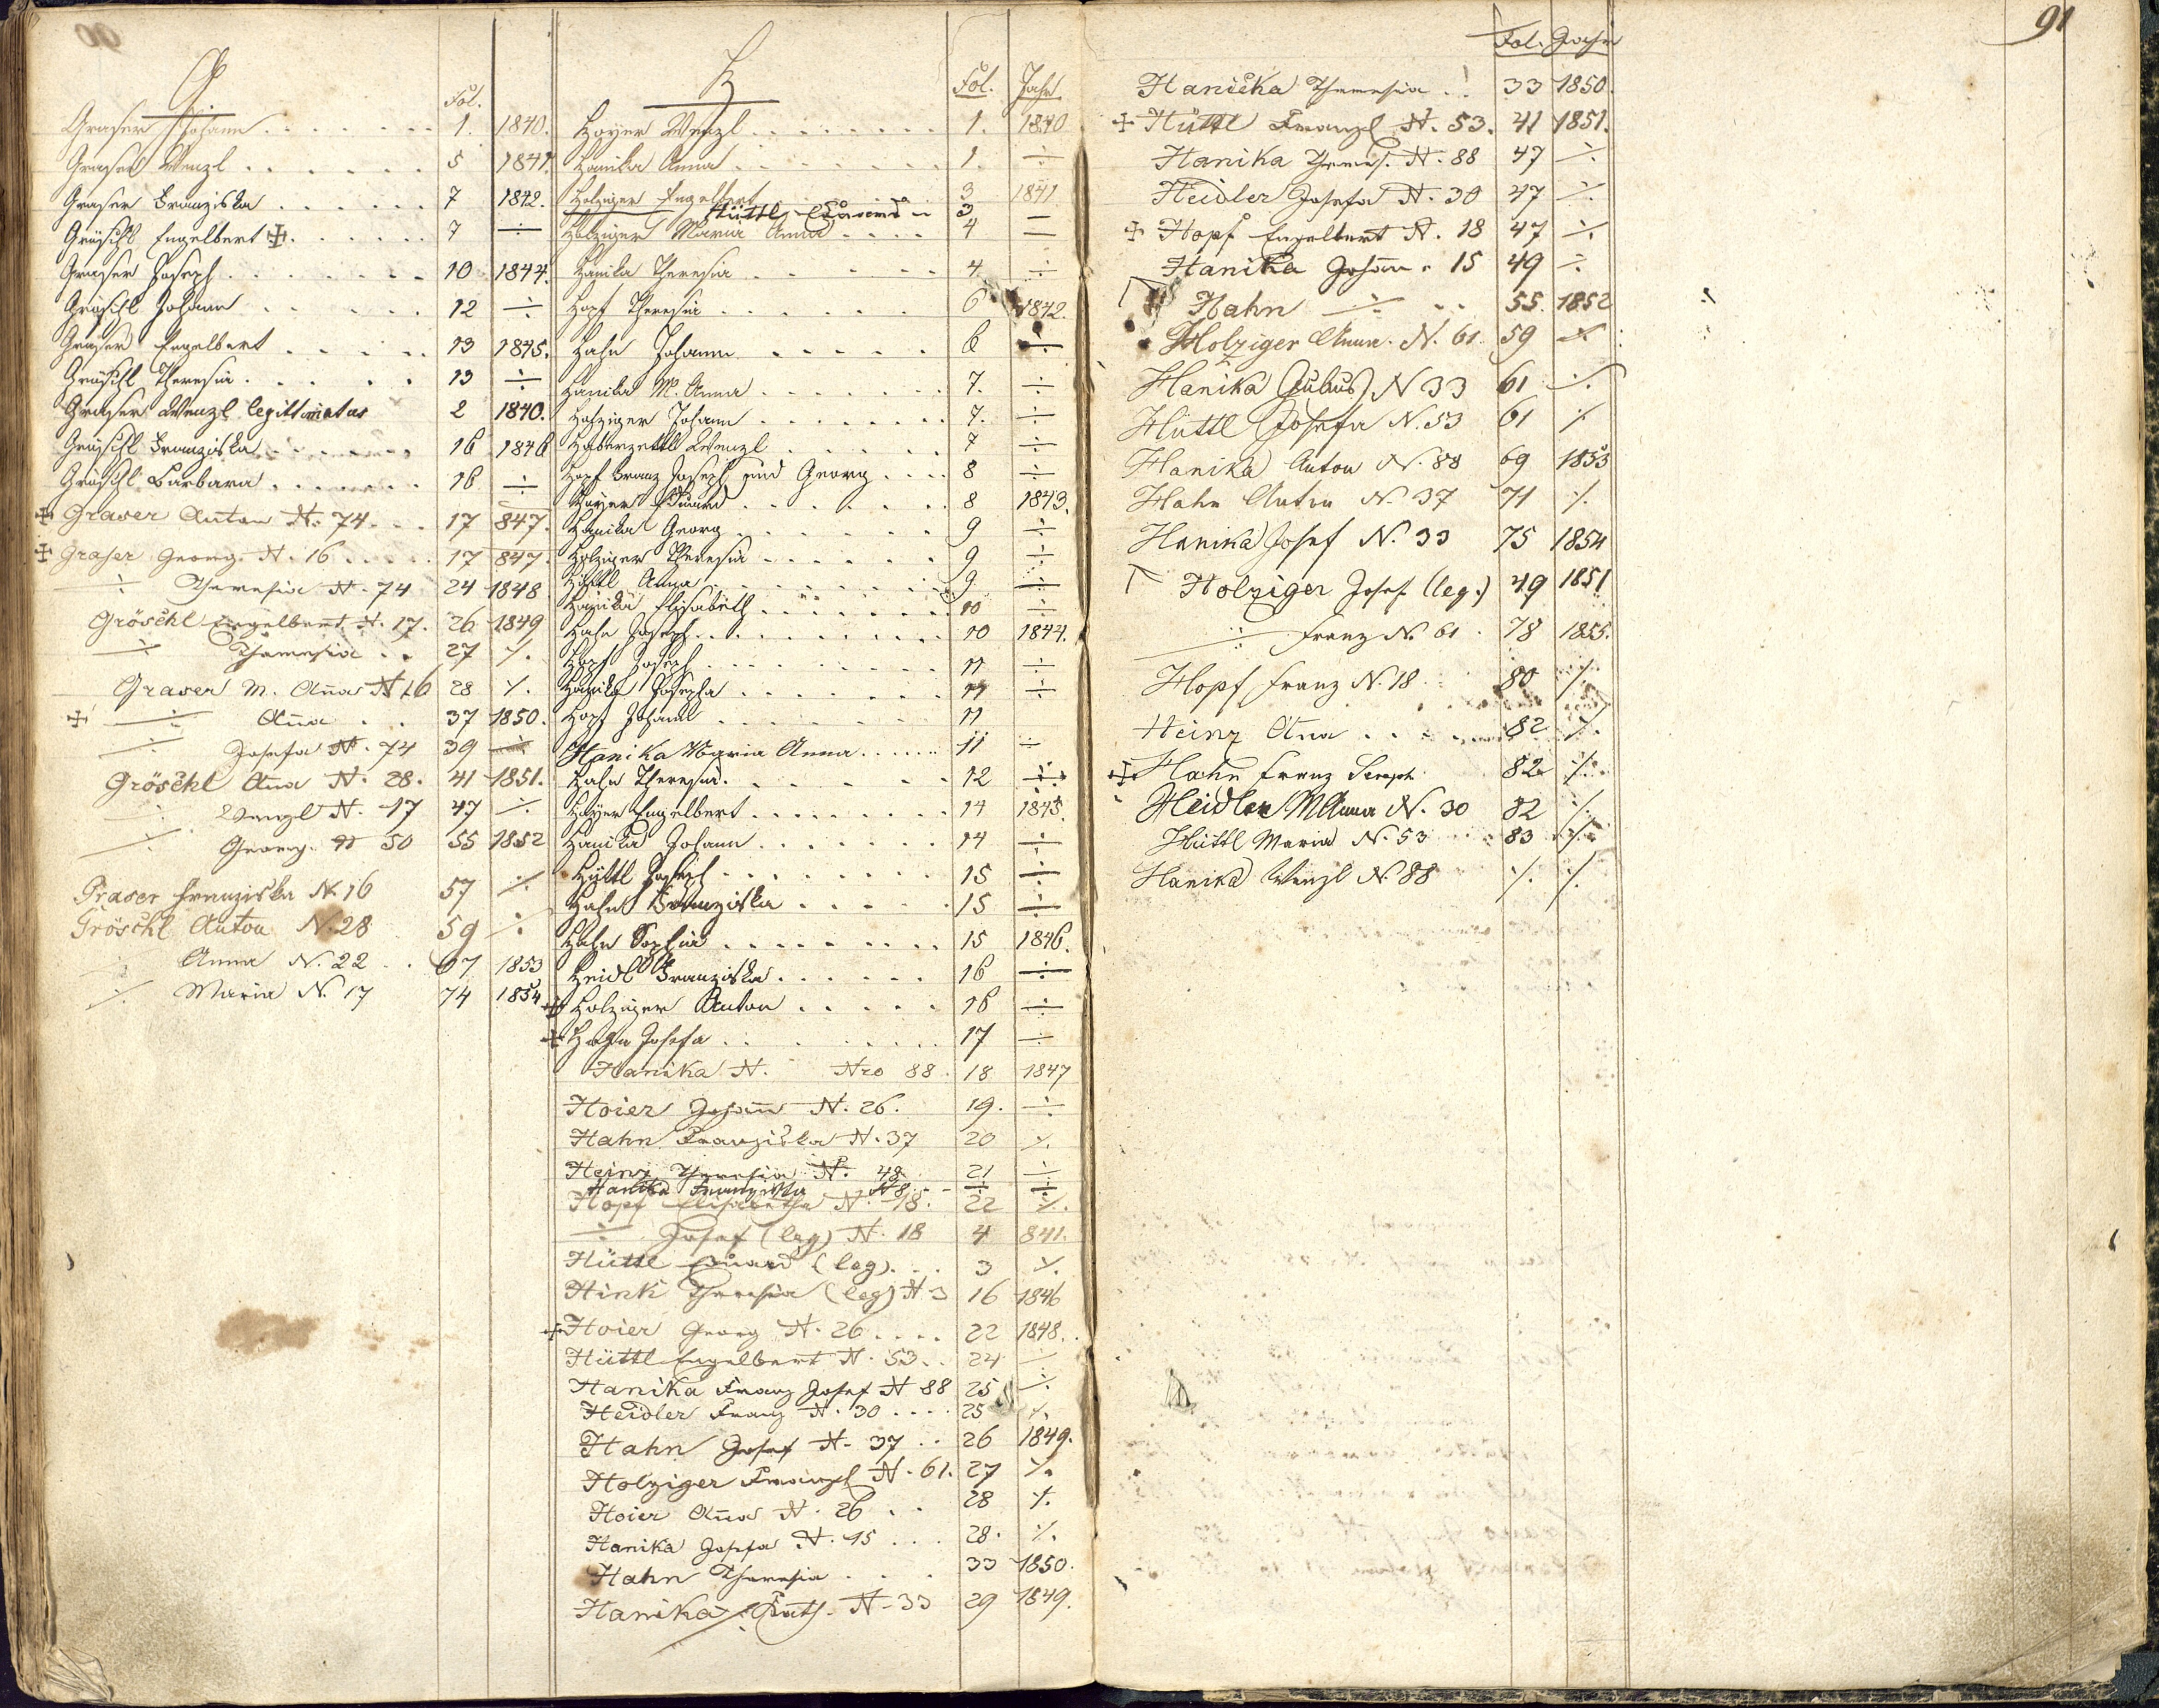 G
Fol.
Graser Johann . . . . . . . 1. 1840.
Graser Wenzl . . . . . . 5 1841.
Graser Franziska . . . . . . 7 1842.
Gröschl Engelbert ✠ . . . . . 7 ÷
Graser Joseph . . . . . . . 10 1844.
Gröschl Johann . . . . . 12 ÷
Graser Engelbert . . . . . 13 1845.
Gröschl Theresia . . . . . 13 ÷
Graser Wenzl legittimatus 2 1840.
Gröschl Franziska . . . . . . 16 1846
Gröschl Barbara . . . . . . . 16 ÷
✠ Graser Anton N. 74 . . . 17 847.
✠ Graser Georg N. 16 . . . . . 17 847.
÷ Theresia N. 74 24 1848
Gröschl Engelbert N. 17. 26 1849
÷ Theresia . . 27 ⁒.
Graser M. Ana N 16 28 ⁒.
✠ ÷ Ana . . 37 1850.
÷ Josefa N. 74 39 ÷
Gröschl Ana N. 28. 41 1851.
÷ Wenzl N. 17 47 ⁒
÷ Georg N 50 55 1852
Graser Franziska N. 16 57 ⁒
Gröschl Anton N. 28 59 ⁒
⁒ Anna N. 22 . . 67 1853
⁒ Maria N. 17 74 1854
H
Fol. Jahr
Hoyer Wenzl . . . . . . . . 1. 1840
Hanika Anna . . . . . . . 1. ÷
Holziger Engelbert 3 1841
Hüttl Eduard 3
Holziger Maria Anna . . . . 4 —
Hanika Theresia . . . . . . 4. ÷
Hopf Theresia . . . . . . 6 1842.
Hahn Johann . . . . . . 6 ÷
Hanika M. Anna . . . . . . 7. ÷
Holziger Johann . . . . . . . 7. ÷
Haberzettl Wenzl . . . . . 7 ÷
Hopf Franz Joseph und Georg . . . . 8 ÷
Hoyer Eduard . . . . . . . 8 1843.
Hanika Georg . . . . . . . 9 ÷
Holziger Theresia . . . . . . 9 ÷
Hüttl Anna . . . . . . . 9 ÷
Hanika Elisabeth . . . . . . . 10 ÷
Hahn Joseph . . . . . . . . . 10 1844.
Hopf Joseph . . . . . . . . 11 ÷
Hanika Josepha . . . . . . . 11 ÷
Hopf Johann . . . . . . . 11
Hanika Maria Anna . . . . . . 11 ÷
Hahn Theresia . . . . . . 12 ÷
Hoyer Engelbert . . . . . . . . . 14 1845.
Hanika Johann . . . . . . . 14 ÷
Hüttl Joseph . . . . . . . . 15 ÷
Hahn Franziska . . . . . 15 ÷
Hahn Sophia . . . . . . . . . 15 1846.
Heidl Franziska . . . . . . 16 ÷
✠ Holziger Anton . . . . . 16 ÷
✠ Hahn Josefa . . . . . . . . 17 ÷
Hanika N. Nro 88. 18 1847
Hoier Johann N. 26. 19. ÷
Hahn Franziska N. 37 20 ⁒.
Heinz Theresia N. 48 21 ÷
Hanika Franziska N 8 . . ÷ ÷
Hopf Elisabetha N. 18. 22 ⁒.
÷ Josef (leg) N. 18 4 841.
Hüttl Eduard (leg) . . . 3 ⁒.
Hink Theresia (leg) N 3 16 1846
✠ Hoier Georg N. 26 . . . . 22 1848.
Hüttl Engelbert N. 53 . . 24 ÷
Hanika Franz Josef N 88 25 ⁒.
Heidler Franz N. 30 . . . . 25 ⁒.
Hahn Josef N. 37 . . 26 1849.
Holziger Franzl N. 61. 27 ⁒.
Hoier Ana N. 26 . . 28 ⁒.
Hanika Josefa N. 15 . . . 28. ⁒.
Hahn Theresia . . . . 33 1850.
Hanika N. 33 29 1849.
91
Fol. Jahr
Hanička Theresia . . 33 1850.
✠ Hüttl Franzl N. 53. 41 1851.
Hanika Theres. N. 88 47 ⁒.
Heidler Josefa N. 30 47 ⁒.
✠ Hopf Engelbert N. 18 47 ⁒.
Hanika Johann " 15 49 ⁒.
Hahn ÷ . . 55. 1852
Holziger Anna. N. 61. 59 ⁒
Hanika N 33 61 ⁒.
Hüttl Josefa N. 53 61 ⁒
Hanika Anton N. 88 69 1853
Hahn Anton N. 37 71 ⁒.
Hanika Josef N. 33 75 1854
Holziger Josef (leg.) 49 1851
÷ Franz N. 61 . 78 1855.
Hopf Franz N. 18 80 ⁒.
Heinz Ana . . . . . . 82 ⁒.
✠ Hahn Franz Seraph. 82 ⁒.
Heidler M Anna N. 30 82 ⁒.
Hüttl Maria N. 53 83 ⁒.
Hanika Wenzl N. 88 ⁒. ⁒.